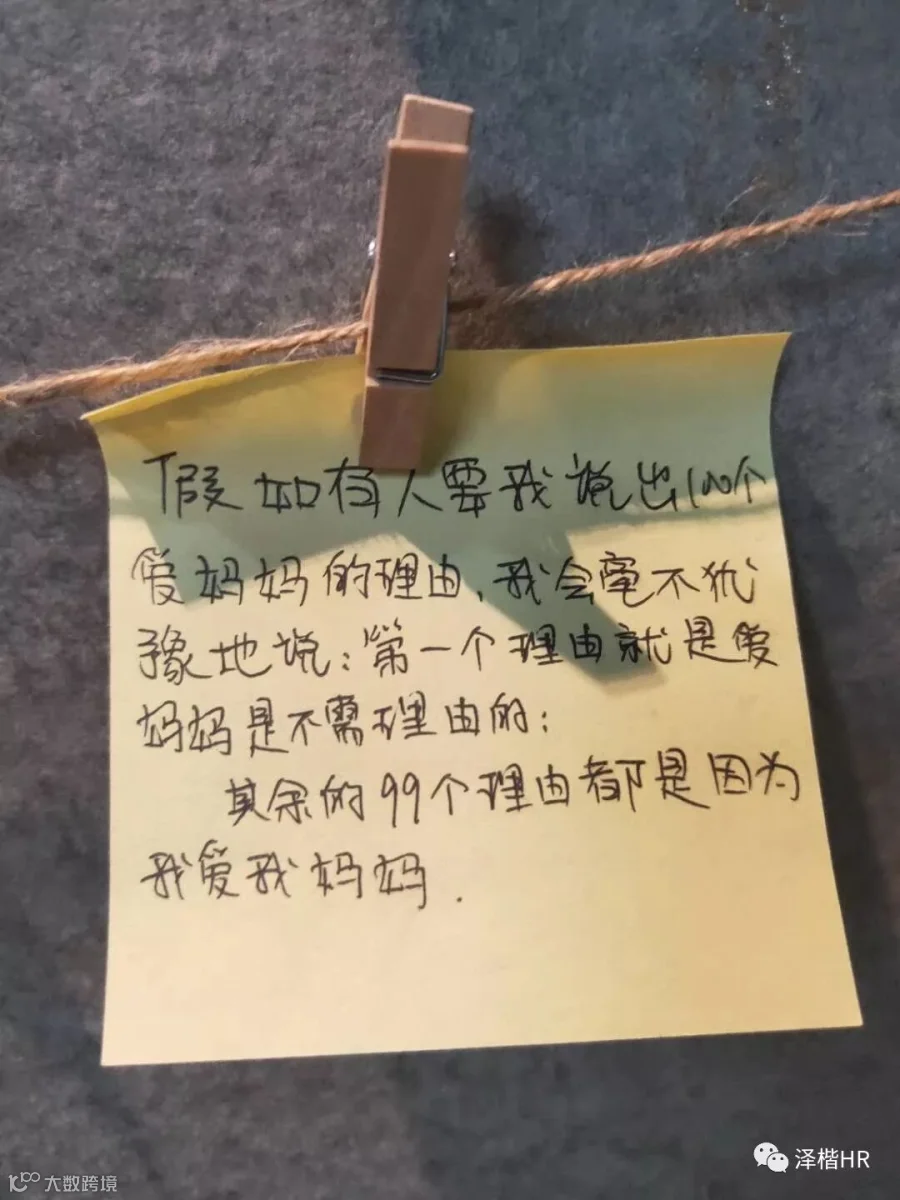 假如有人要我说出100个
爱妈妈的理由,我会毫不犹
豫地说:第一个理由就是爱
妈妈是不需理由的:
其余的99个理由都是因为
我爱我妈妈.
泽楷HR
大数跨境